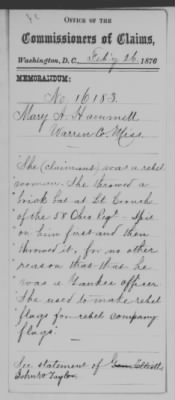 OFFICE OF THE
Commissioners of Claims,
Washington, D.C., Feb'y 26, 1876
MEMORANDUM:
No. 16183.
Mary A. Hammell
Warren Co. Miss.
She (claimant) was a rebel
woman. She throwed a
brick bat at Lt
of the 58 Ohio Regt - Spit
on him first and then
throwed it, for no other
reason than that he
was a Yankee officer
She used to make rebel
flags for rebel company
flags
See statement of
John W Taylor